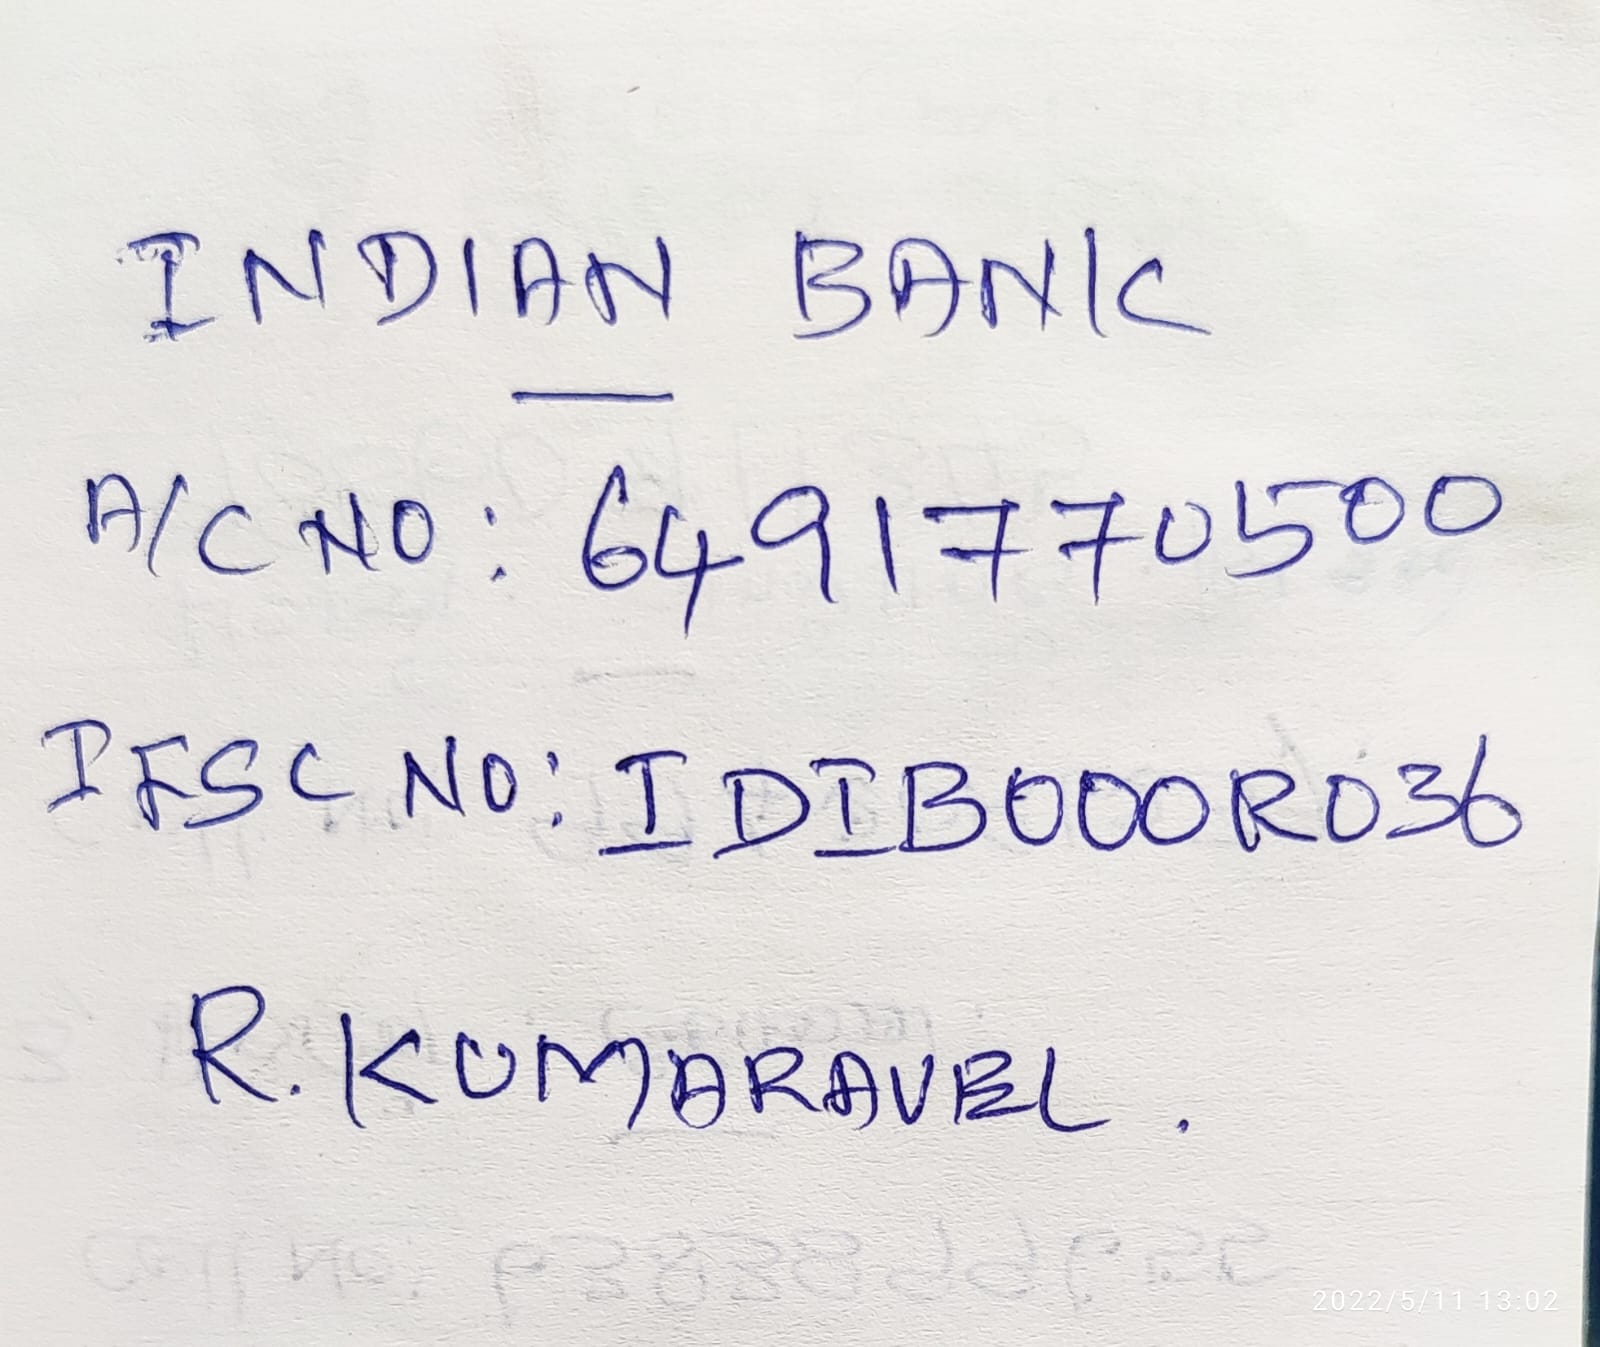 INDIAN BANK
A/C NO: 6491770500
IFSC NO: IDIB000R036
R. KUMARAVEL.
2022/5/11 13:02